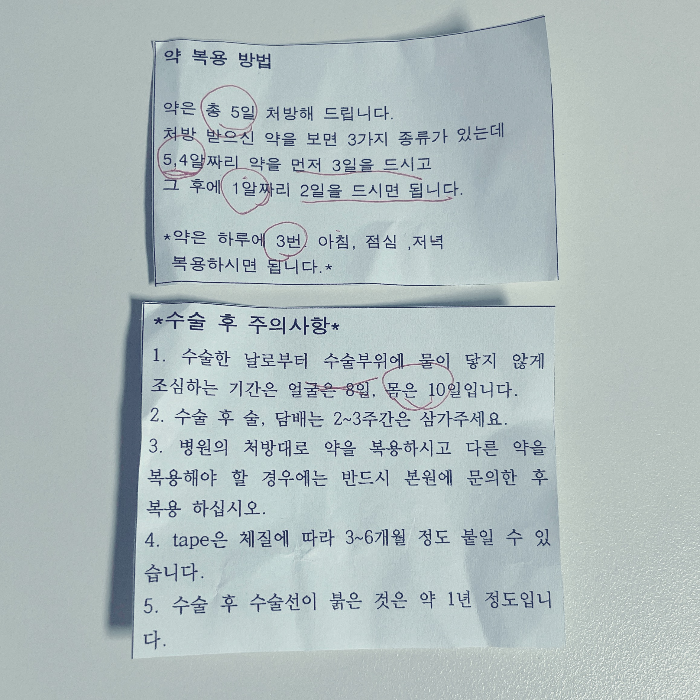 약 복용 방법
약은 총 5일 처방해 드립니다.
처방 받으신 약을 보면 3가지 종류가 있는데
5,4알짜리 약을 먼저 3일을 드시고
그 후에 1알짜리 2일을 드시면 됩니다.
*약은 하루에 3번. 아침, 점심 ,저녁
복용하시면 됩니다.*
*수술 후 주의사항*
1. 수술한 날로부터 수술부위에 물이 닿지 않게
조심하는 기간은 얼굴은 8일, 몸은 10일입니다.
2. 수술 후 술, 담배는 2~3주간은 삼가주세요.
3. 병원의 처방대로 약을 복용하시고 다른 약을
복용해야 할 경우에는 반드시 본원에 문의한 후
복용 하십시오.
4. tape은 체질에 따라 3~6개월 정도 붙일 수 있
습니다.
5. 수술 후 수술선이 붉은 것은 약 1년 정도입니
다.